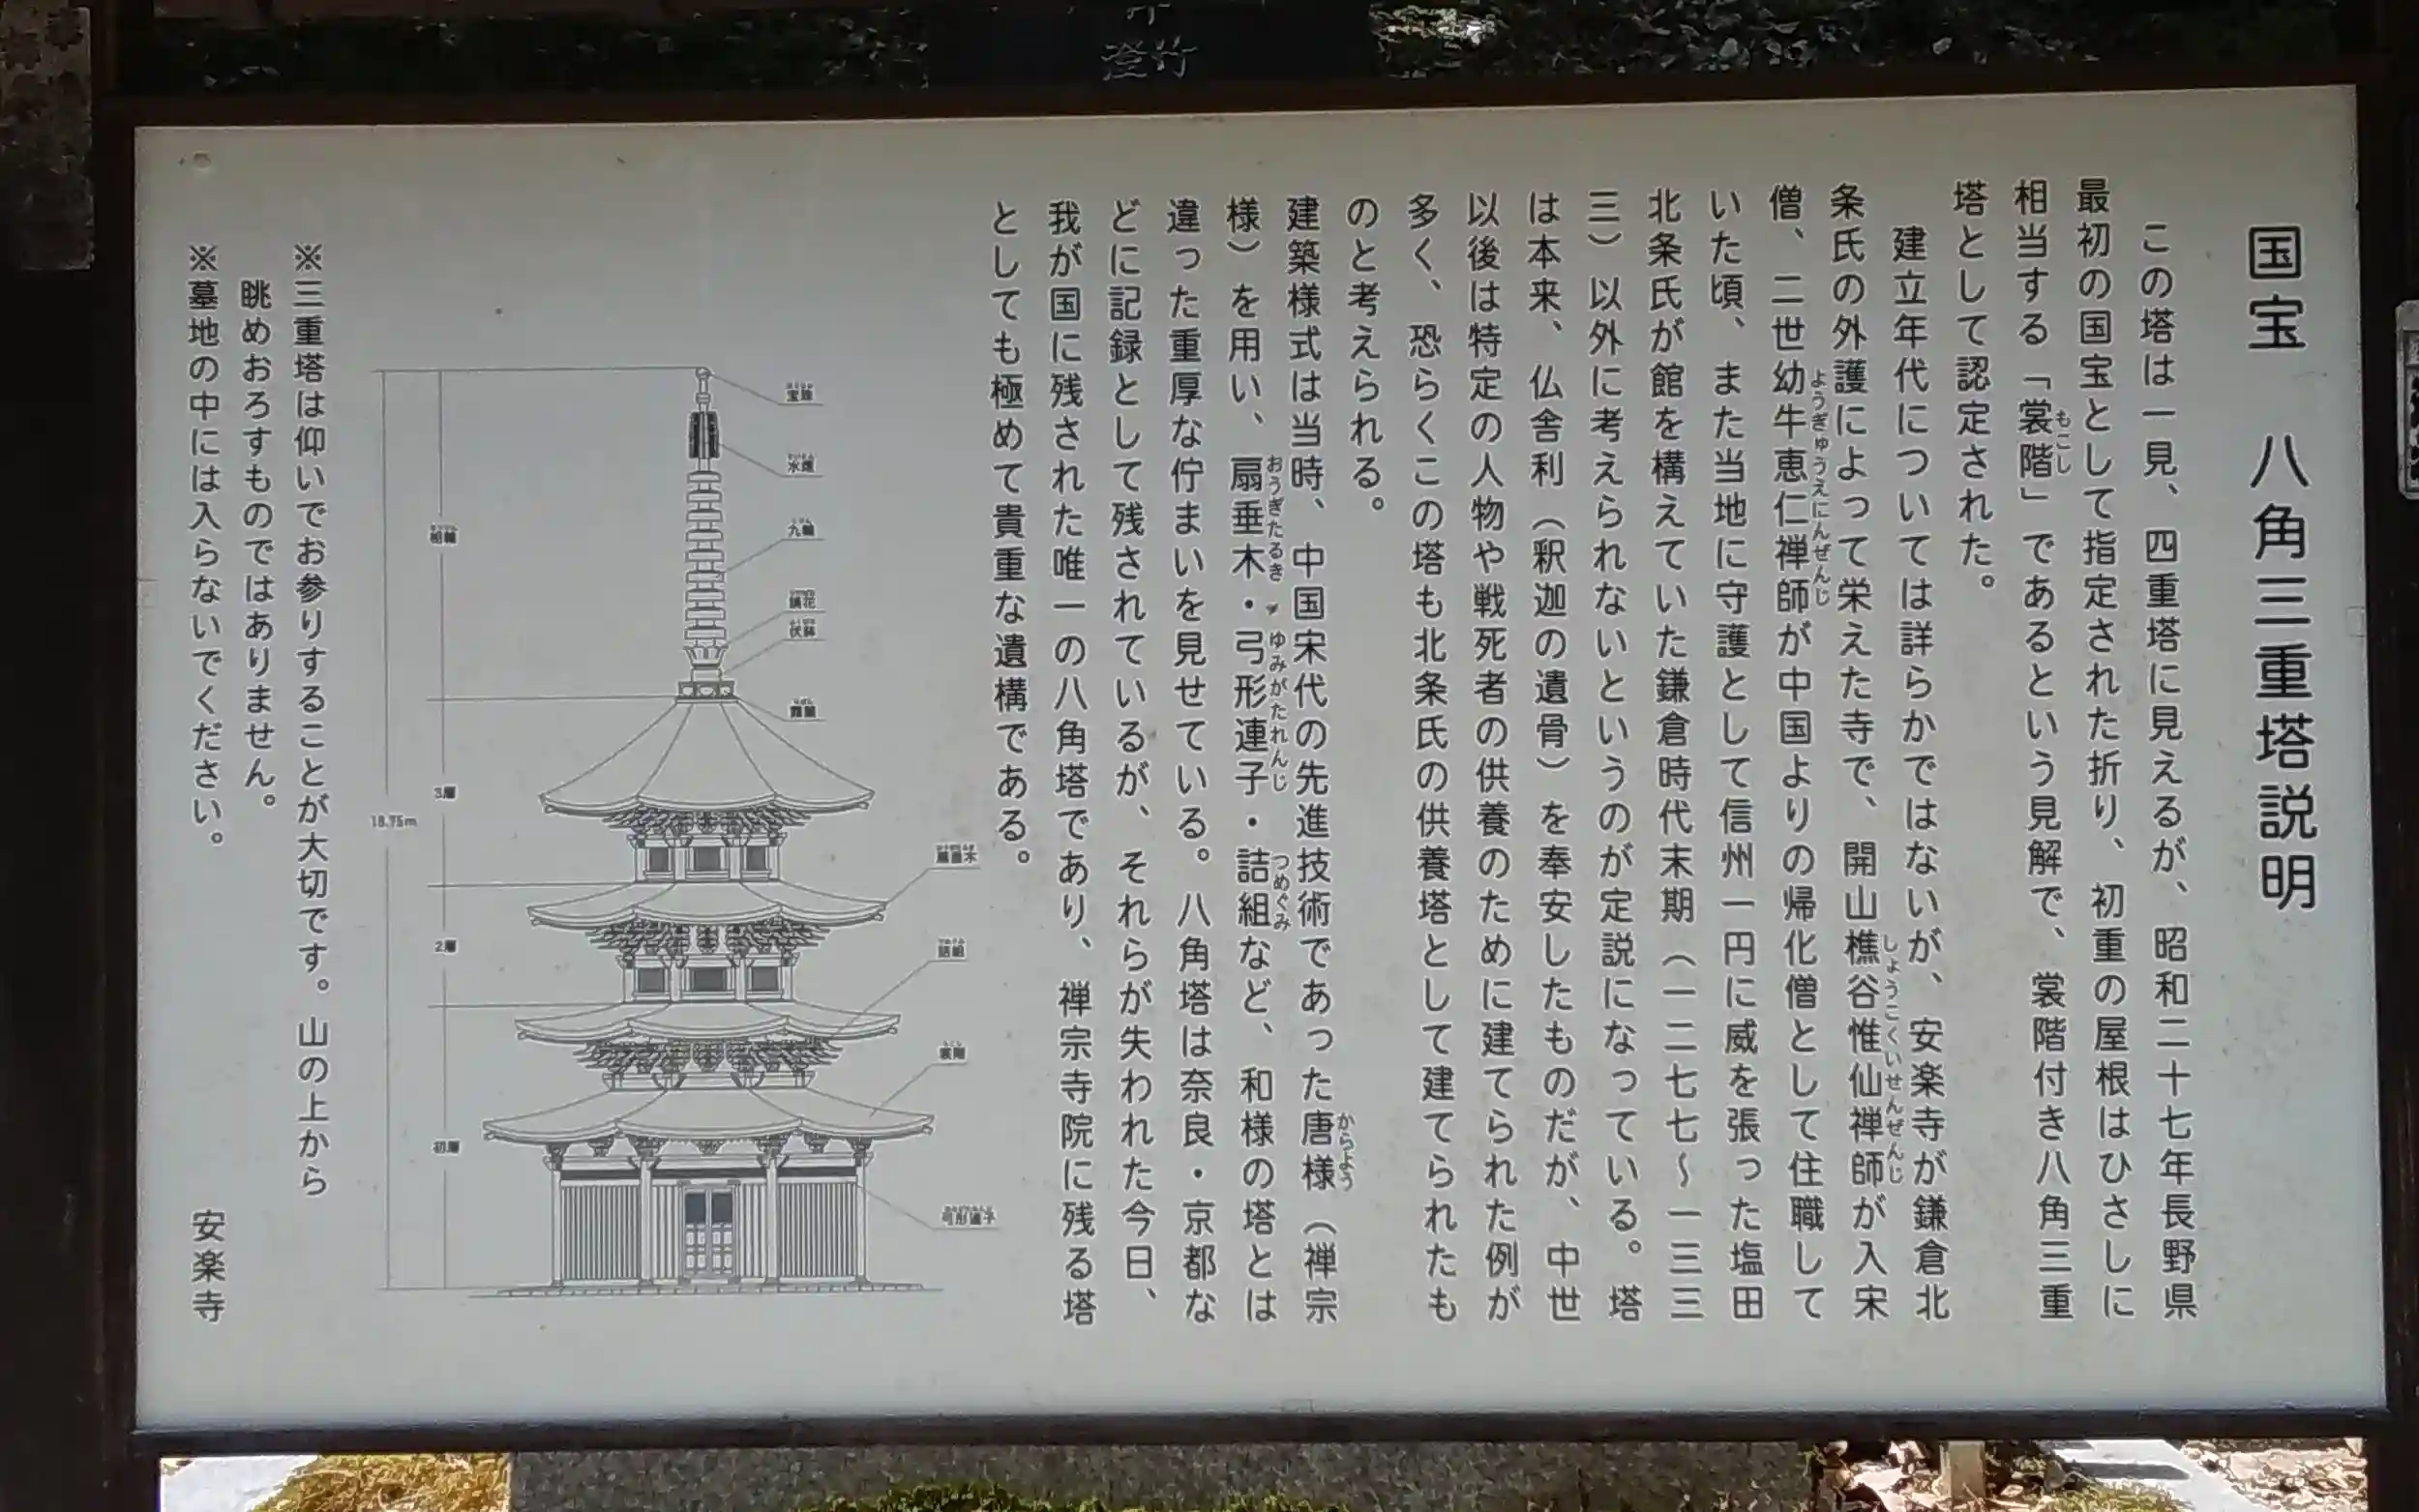 澄竹
国宝　八角三重塔説明
この塔は一見、四重塔に見えるが、昭和二十七年長野県
最初の国宝として指定された折り、初重の屋根はひさしに
相当する「裳階」であるという見解で、裳階付き八角三重
もこし
塔として認定された。
建立年代については詳らかではないが、安楽寺が鎌倉北
条氏の外護によって栄えた寺で、開山樵谷惟仙禅師が入宋
しょうこくいせんぜんじ
僧、二世幼牛恵仁禅師が中国よりの帰化僧として住職して
ようぎゅうえにんぜんじ
いた頃、また当地に守護として信州一円に威を張った塩田
北条氏が館を構えていた鎌倉時代末期（一二七七～一三三
三）以外に考えられないというのが定説になっている。塔
は本来、仏舎利（釈迦の遺骨）を奉安したものだが、中世
以後は特定の人物や戦死者の供養のために建てられた例が
多く、恐らくこの塔も北条氏の供養塔として建てられたも
のと考えられる。
建築様式は当時、中国宋代の先進技術であった唐様（禅宗
からよう
様）を用い、扇垂木・弓形連子・詰組など、和様の塔とは
おうぎたるき
ゆみがたれんじ
つめぐみ
違った重厚な佇まいを見せている。八角塔は奈良・京都な
どに記録として残されているが、それらが失われた今日、
我が国に残された唯一の八角塔であり、禅宗寺院に残る塔
としても極めて貴重な遺構である。
宝珠
水煙
九輪
請花
伏鉢
露盤
相輪
3層
18.75m
扇垂木
2層
詰組
裳階
初層
弓形連子
※三重塔は仰いでお参りすることが大切です。山の上から
眺めおろすものではありません。
※墓地の中には入らないでください。
安楽寺